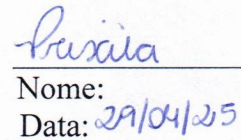 Priscila
Nome:
Data: 29/04/25